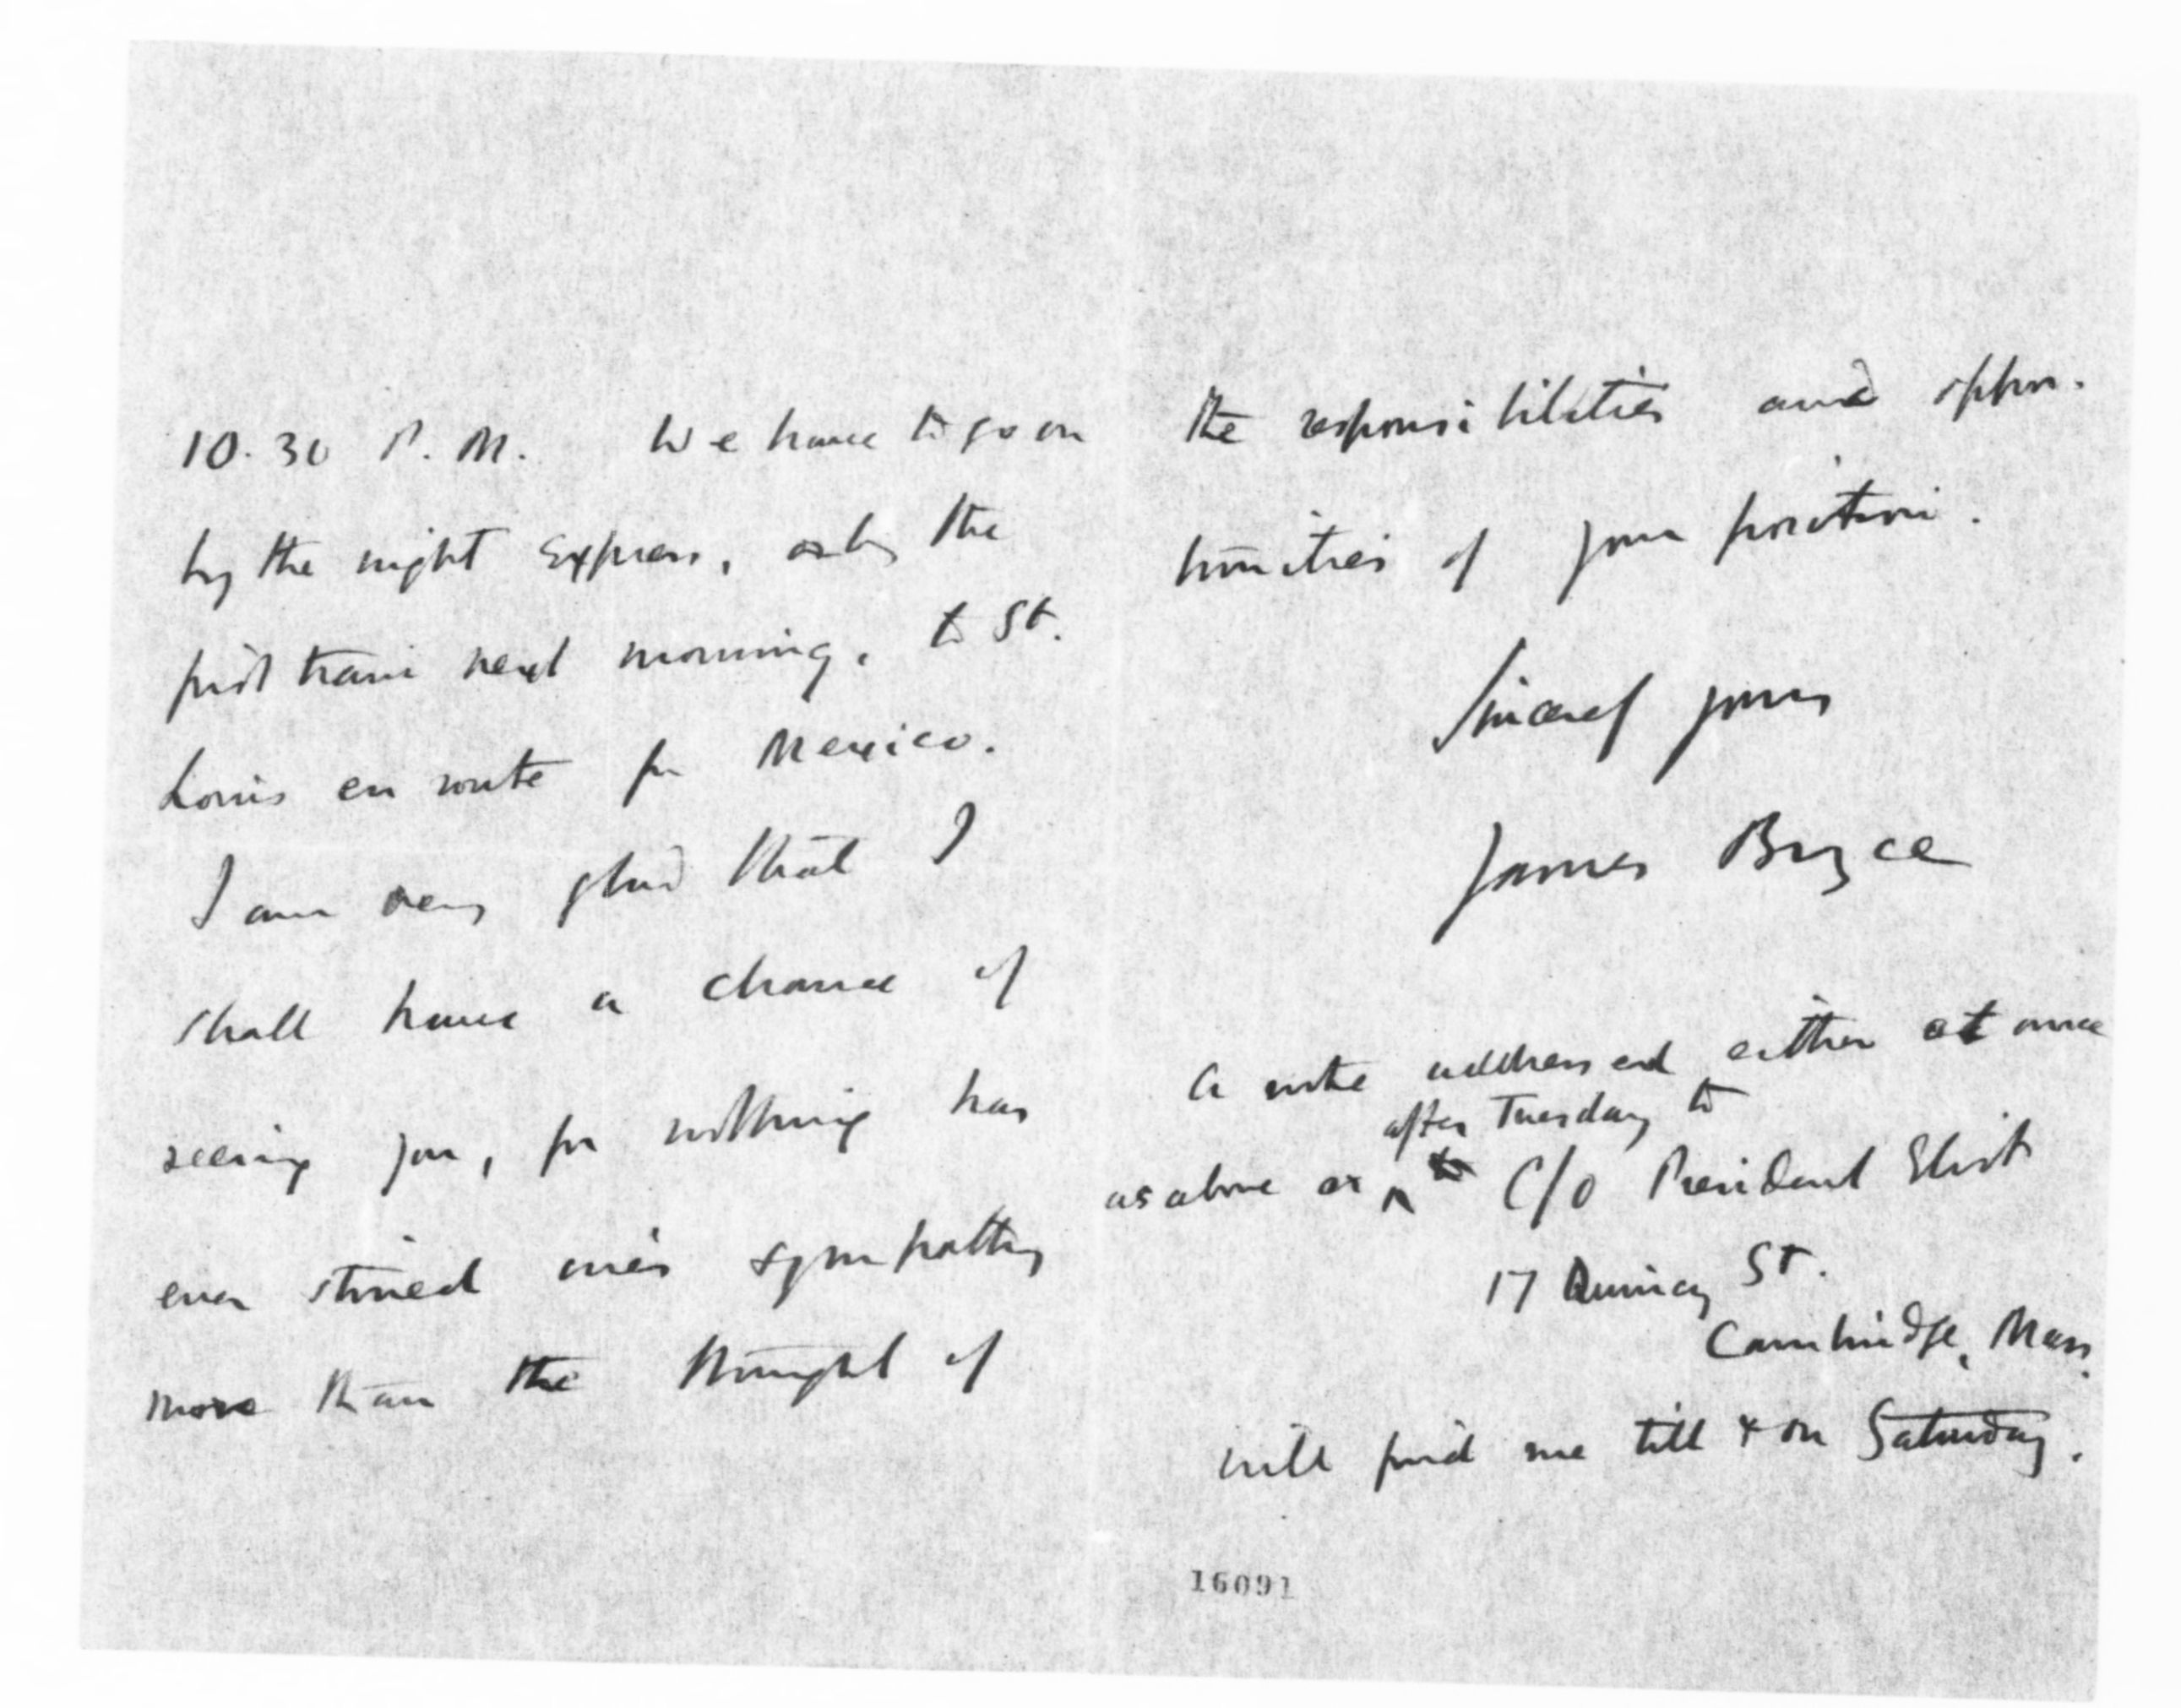 10.30 P.M. We have to go on
by the night Express, or by the
first train next morning, to St.
Louis en route for Mexico.
I am very glad that I
shall have a chance of
seeing you, for nothing has
ever stirred one's sympathy
more than the thought of
the responsibilities and oppor-
tunities of your position.
Sincerely yours
James Bryce
A note addressed either at once
after Tuesday to
as above or ^ to C/o President Eliot
17 Quincy St.
Cambridge, Mass.
will find me till & on Saturday.
16091